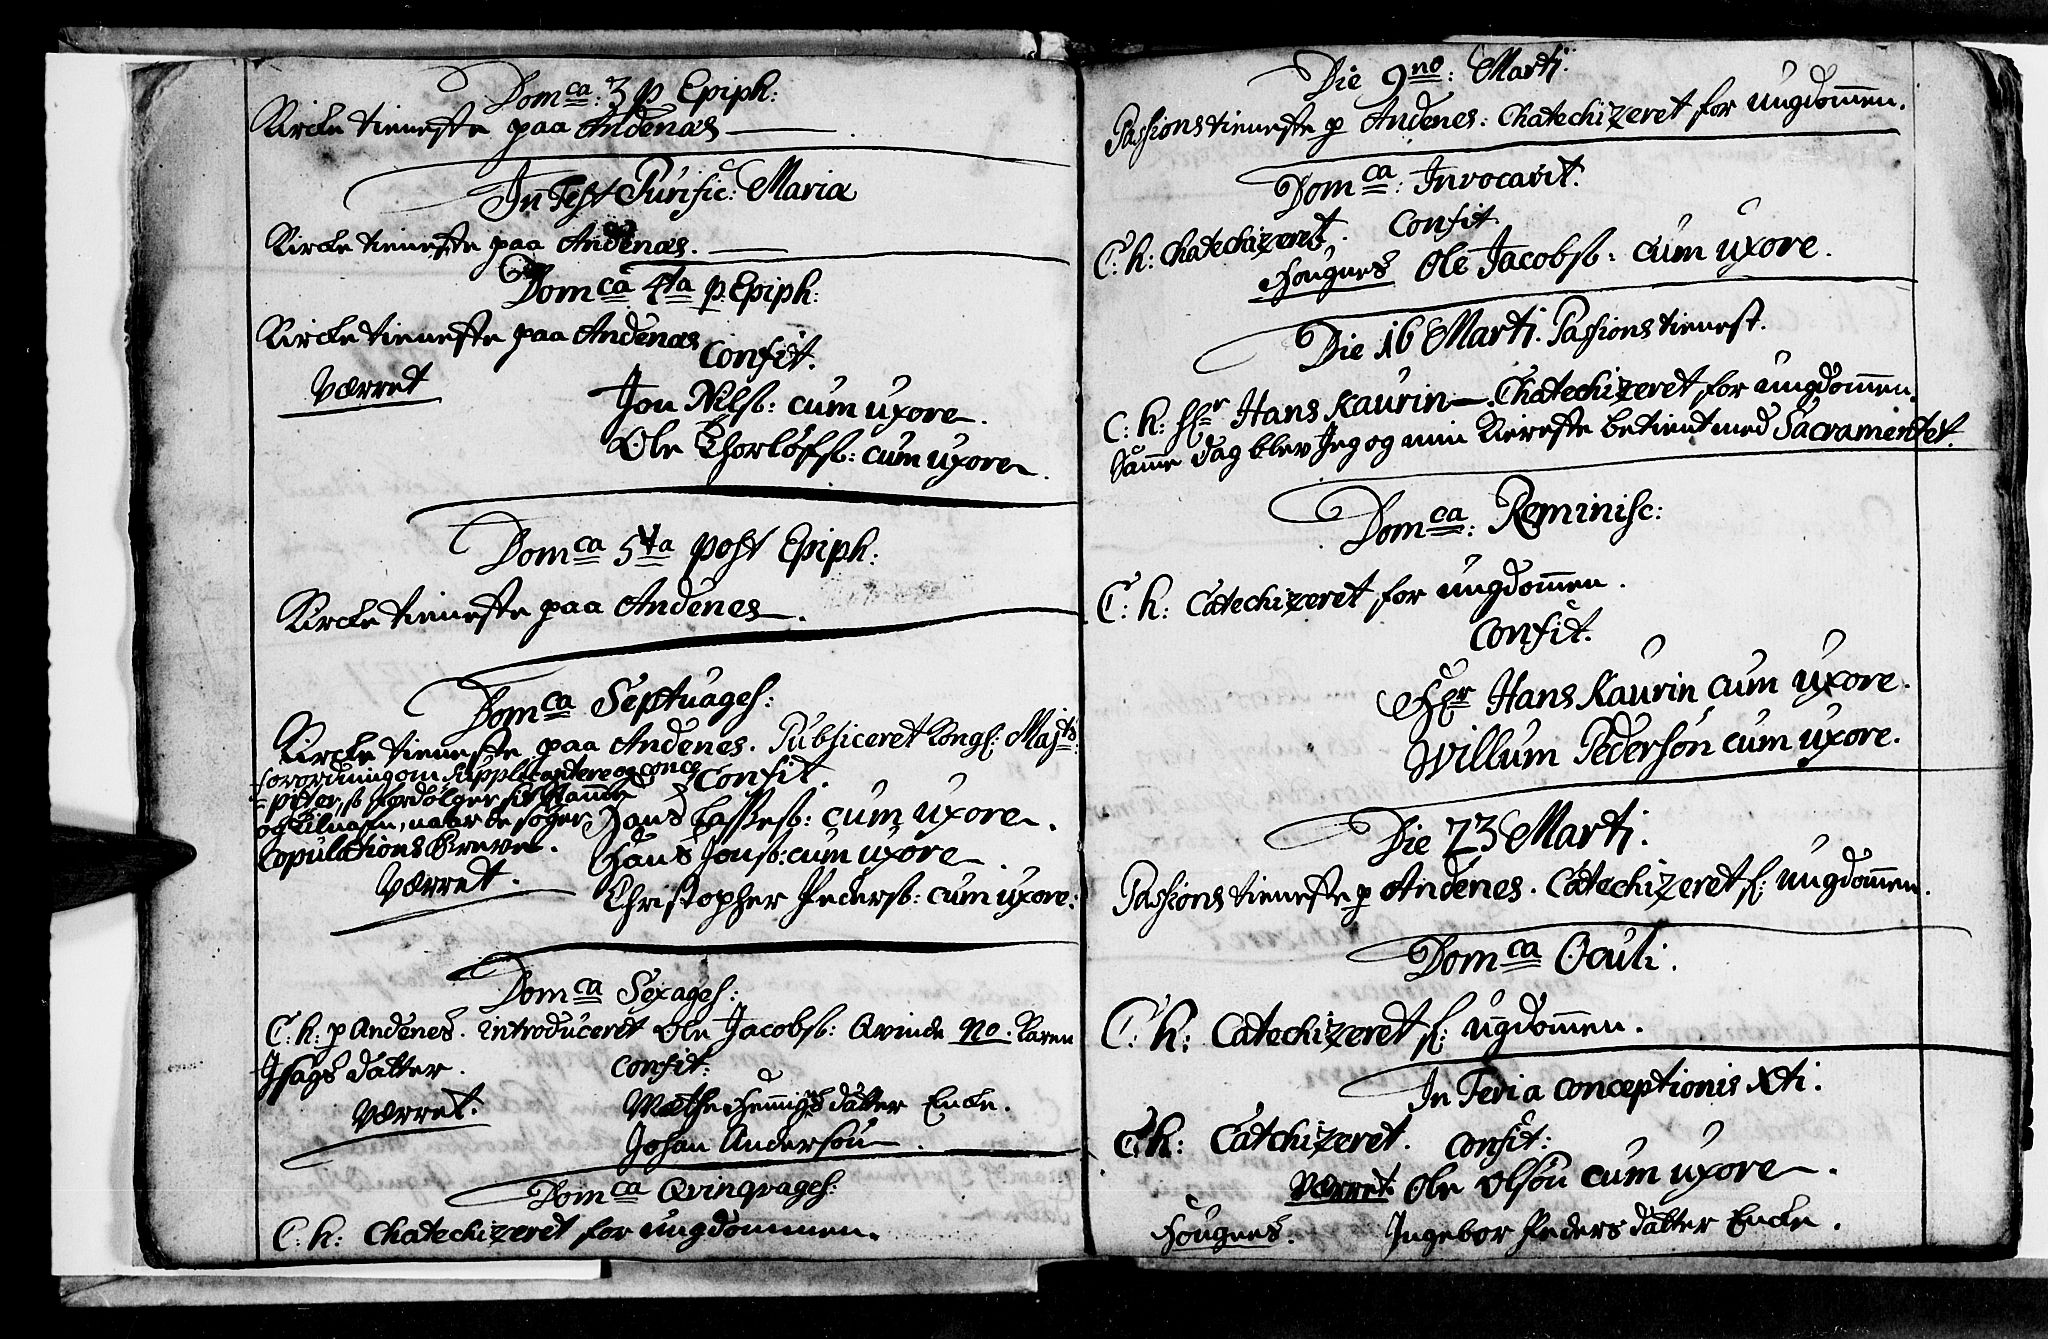 Domca: 3 p Epiph:
Kircke tieneste paa Andenæs
In Fest Purific: Maria
Kircke tieneste paa Andenæs.
Domca 4ta p. Epiph:
Kircke tieneste paa Andenæs
Confit.
Værret
Jon Nilss: cum uxore.
Ole Thorlofss: cum uxore.
Domca 5ta post Epiph:
Kircke tieneste paa Andenes.
Domca Septuages:
Kircke tieneste paa Andenes. Publiceret Kongl: Majts:
forordning om Supplicantere og conce
Confit.
=pister, naar de søger
Copulations Breve.
Hans cum uxore.
Hans Jonss: cum uxore.
Værret.
Christopher Pederss: cum uxore.
Domca Sexages:
C. h: p Andenes. introduceret Ole Jacobss: Qvinde No. Karen
Isags datter.
Confit:
Værret.
Mæthe Hemigs datter Encke.
Johan Anderson.
Domca Qvinqvages:
C. h: Chatechizeret for ungdommen.
Die 9no: Marti:
Passions tieneste p Andenes: Chatechizeret for ungdomen.
Domca: Invocavit.
C: h: Chatechizeret. Confit.
Hougnes Ole Jacobss: cum uxore.
Die 16 Marti. Passions tienest.
C: h: Hr Hans Kaurin. Chatechizeret for ungdomen.
Same dag blev Jeg og min Kiereste betient med Sacramentet.
Domca: Reminisc:
C: h: Catechizeret for ungdomen.
Confit.
Hr Hans Kaurin cum uxore.
Willum Pederson cum uxore.
Die 23 Marti.
Passions tieneste p Andenes. Catechizeret f: ungdomen.
Domca Oculi.
C. h: Catechizeret f: ugdomen.
In Feria conceptionis Xti.
C. h: Catchizeret. Confit:
Værret. Ole Olson cum uxore.
Hougnes. Ingebor Peders datter Encke.